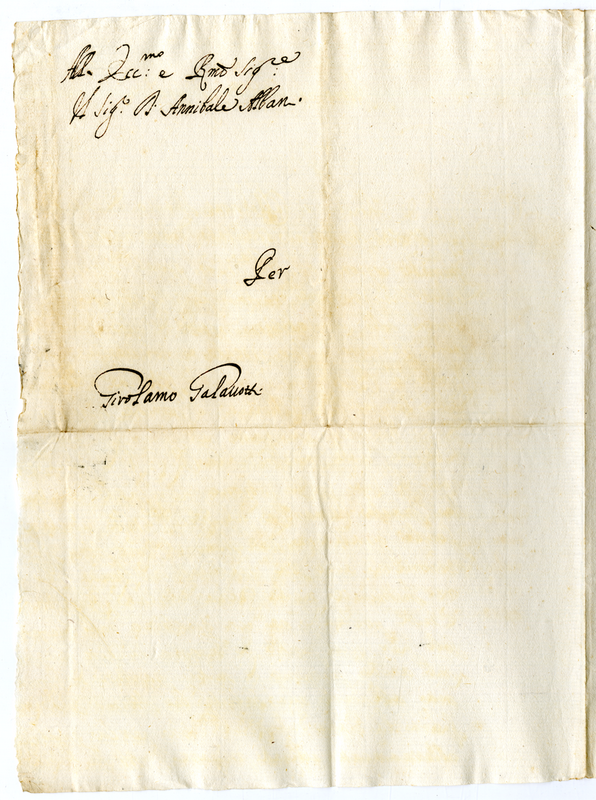 All. Ecc:mo e Rmo Sig:re
Il Sig:r D. Annibale Alban.
Per
Girolamo Galavotti